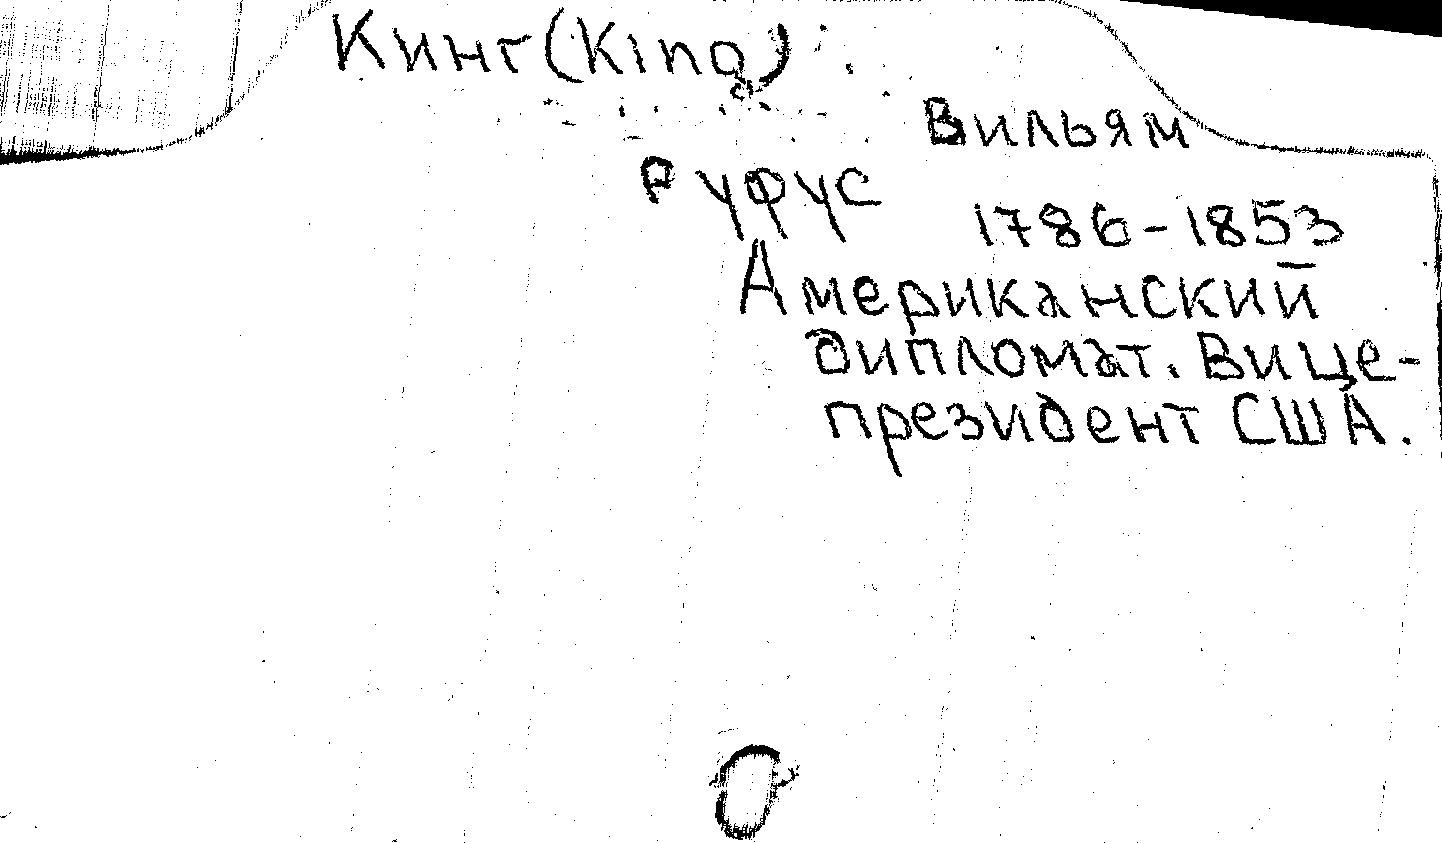 Кинг (King)
Вильям
Руфус
1786-1853
Американский
дипломат. Вице-
президент США.